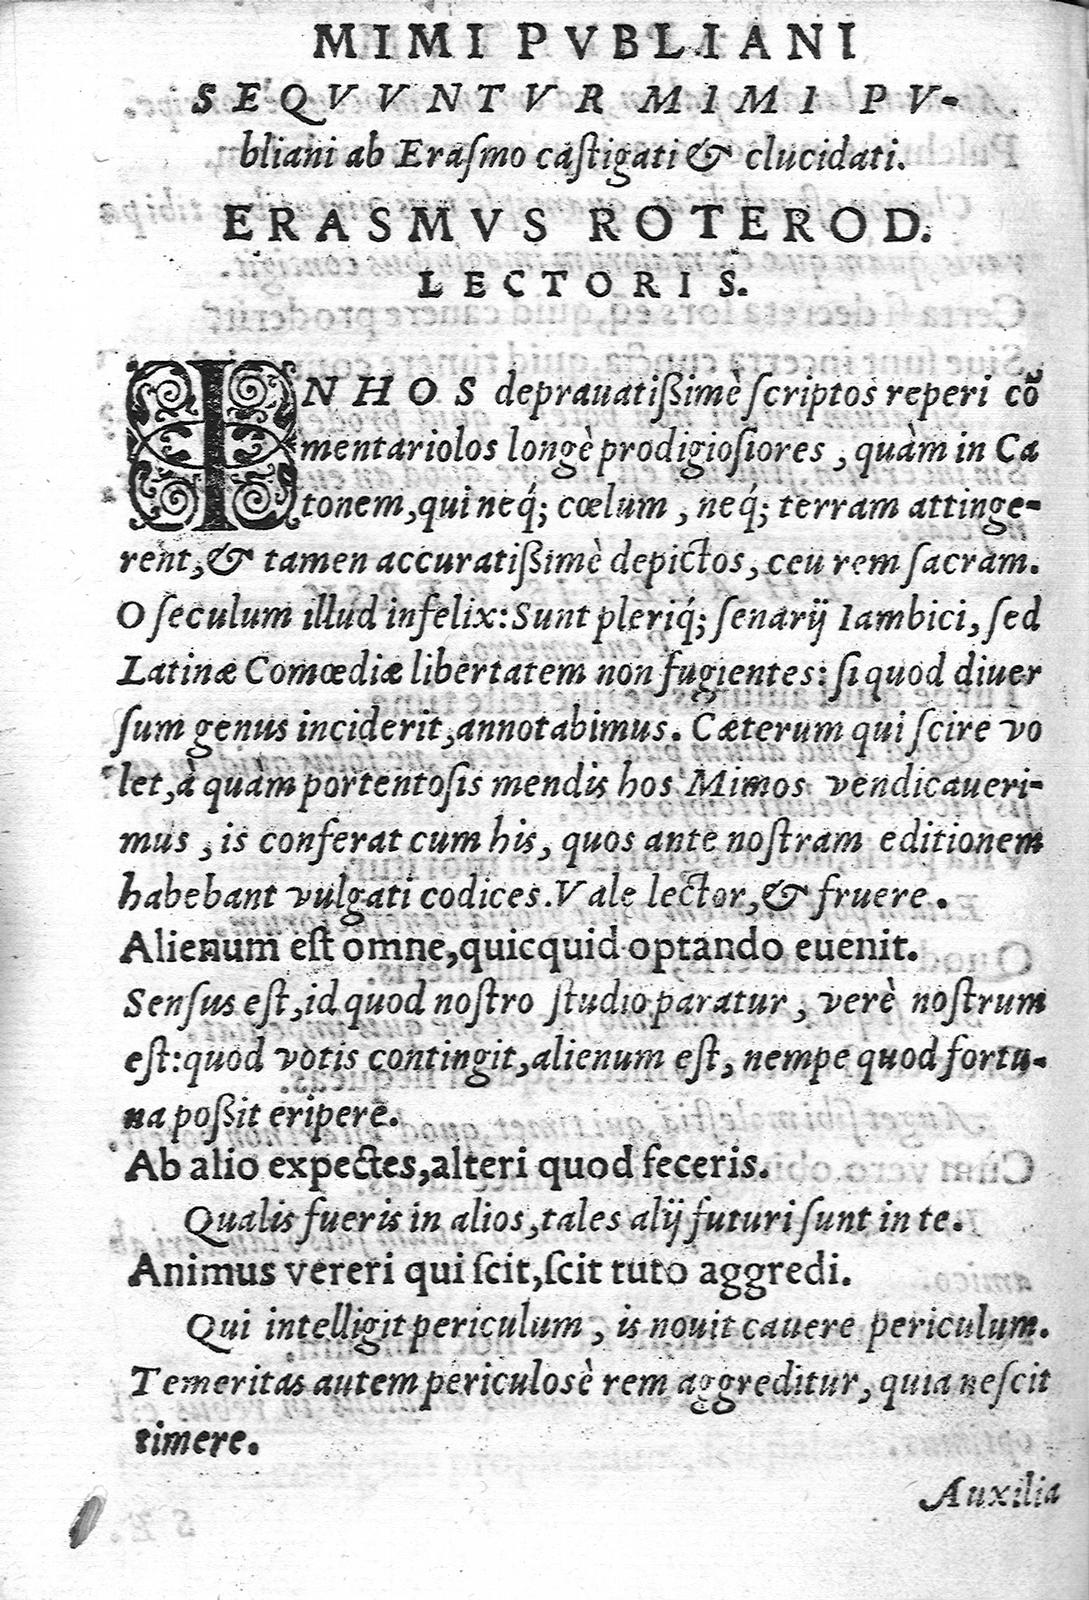 MIMI PVBLIANI
SEQVVNTVR MIMI PV-
bliani ab Eraſmo caſtigati & elucidati.
ERASMVS ROTEROD.
LECTORIS.
IN HOS deprauatißimè ſcriptos reperi cõ
mentariolos longè prodigioſiores, quàm in Ca
tonem, qui neq́; cœlum, neq́; terram attinge-
rent, & tamen accuratißimè depictos, ceu rem ſacram.
O ſeculum illud infelix: Sunt pleriq́; ſenarij Iambici, ſed
Latinæ Comœdiæ libertatem non fugientes: ſi quod diuer
ſum genus inciderit, annotabimus. Cæterum qui ſcire vo
let, à quàm portentoſis mendis hos Mimos vendicaueri-
mus, is conferat cum his, quos ante noſtram editionem
habebant vulgati codices. Vale lector, & fruere.
Alienum eſt omne, quicquid optando euenit.
Senſus eſt, id quod noſtro ſtudio paratur, verè noſtrum
eſt: quod votis contingit, alienum eſt, nempe quod fortu-
na poßit eripere.
Ab alio expectes, alteri quod feceris.
Qualis fueris in alios, tales alij futuri ſunt in te.
Animus vereri qui ſcit, ſcit tuto aggredi.
Qui intelligit periculum, is nouit cauere periculum.
Temeritas autem periculosè rem aggreditur, quia neſcit
timere.
Auxilia